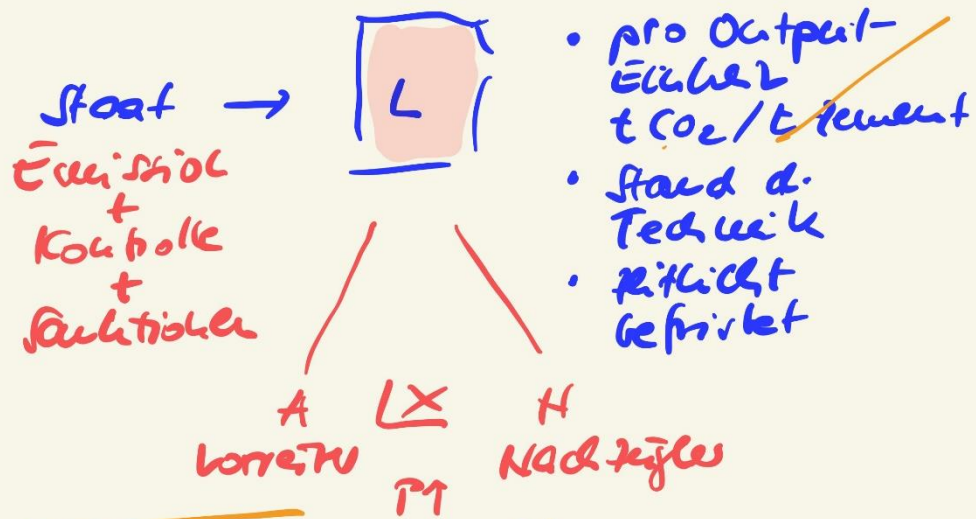 Staat → L
Emission
+
Kontrolle
+
Sanktionen
• pro Output-
Einheit
t CO₂/t Zement
• Stand d.
Technik
• zeitlicht
befristet
A H
Vorreiter Nachzügler
P↑